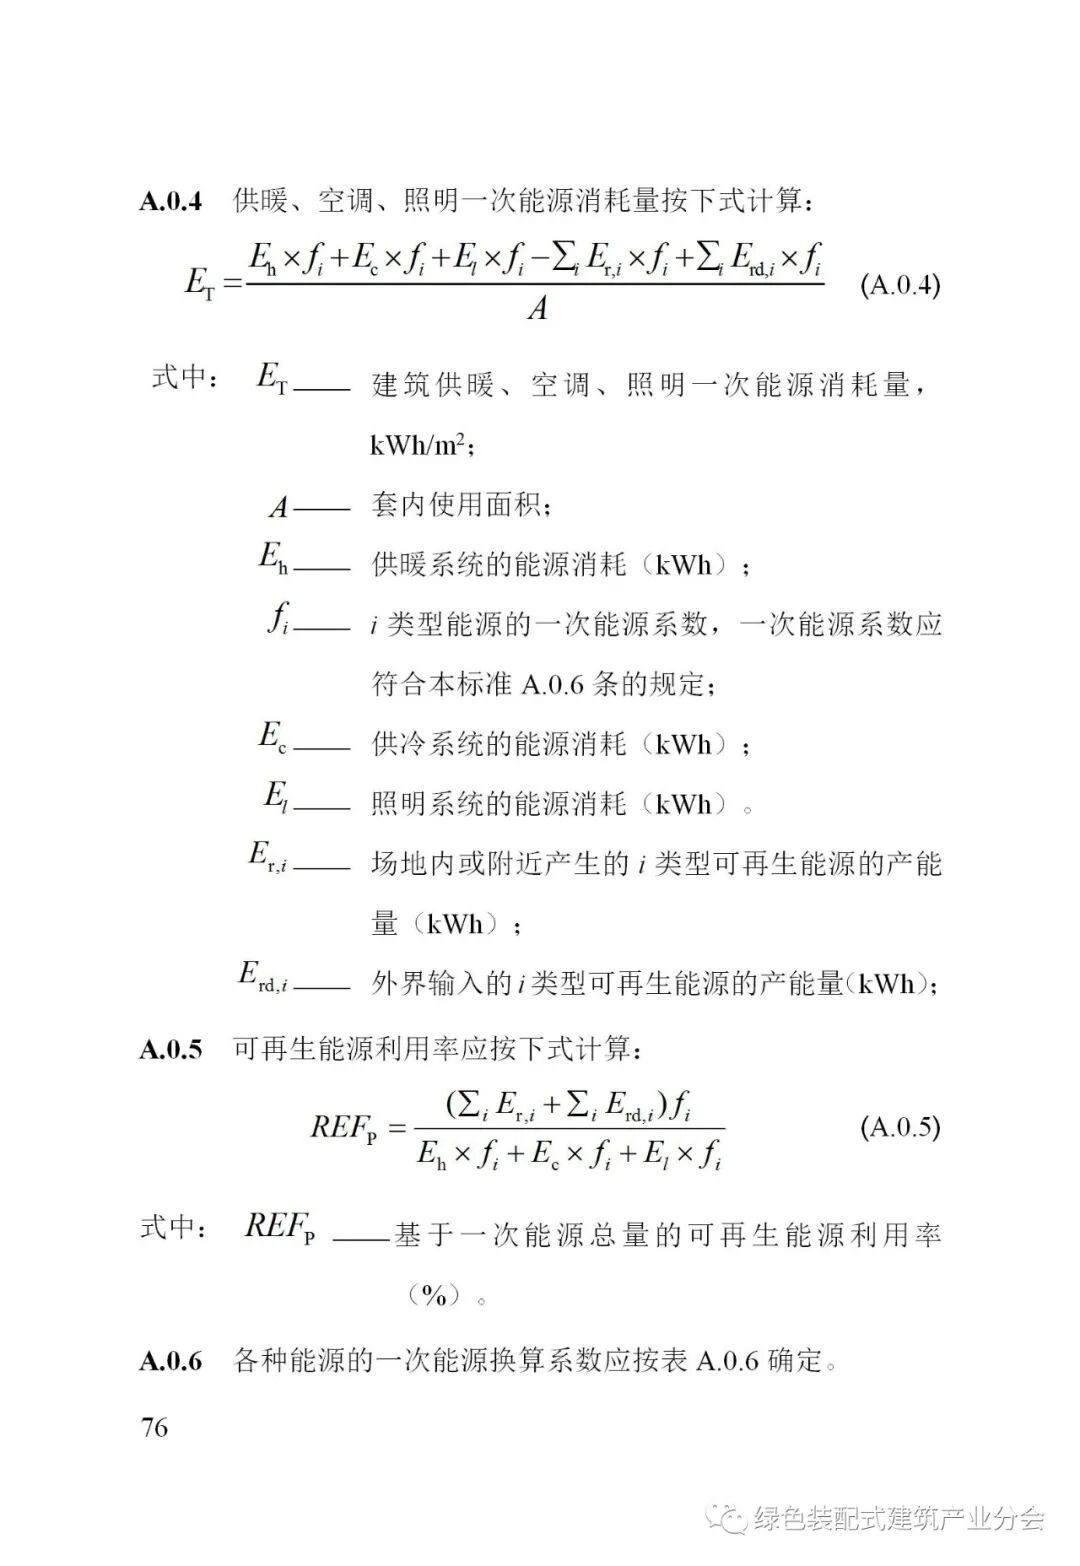 A.0.4 供暖、空调、照明一次能源消耗量按下式计算：
E_T = (E_h×f_i+E_c×f_i+E_l×f_i−∑_i E_{r,i}×f_i+∑_i E_{rd,i}×f_i) / A (A.0.4)
式中： E_T —— 建筑供暖、空调、照明一次能源消耗量，
kWh/m²；
A —— 套内使用面积；
E_h —— 供暖系统的能源消耗（kWh）；
f_i —— i 类型能源的一次能源系数，一次能源系数应
符合本标准 A.0.6 条的规定；
E_c —— 供冷系统的能源消耗（kWh）；
E_l —— 照明系统的能源消耗（kWh）。
E_{r,i} —— 场地内或附近产生的 i 类型可再生能源的产能
量（kWh）；
E_{rd,i} —— 外界输入的 i 类型可再生能源的产能量（kWh）；
A.0.5 可再生能源利用率应按下式计算：
REF_P = (∑_i E_{r,i} + ∑_i E_{rd,i})f_i / (E_h × f_i + E_c × f_i + E_l × f_i) (A.0.5)
式中： REF_P ——基于一次能源总量的可再生能源利用率
（%）。
A.0.6 各种能源的一次能源换算系数应按表 A.0.6 确定。
76
绿色装配式建筑产业分会